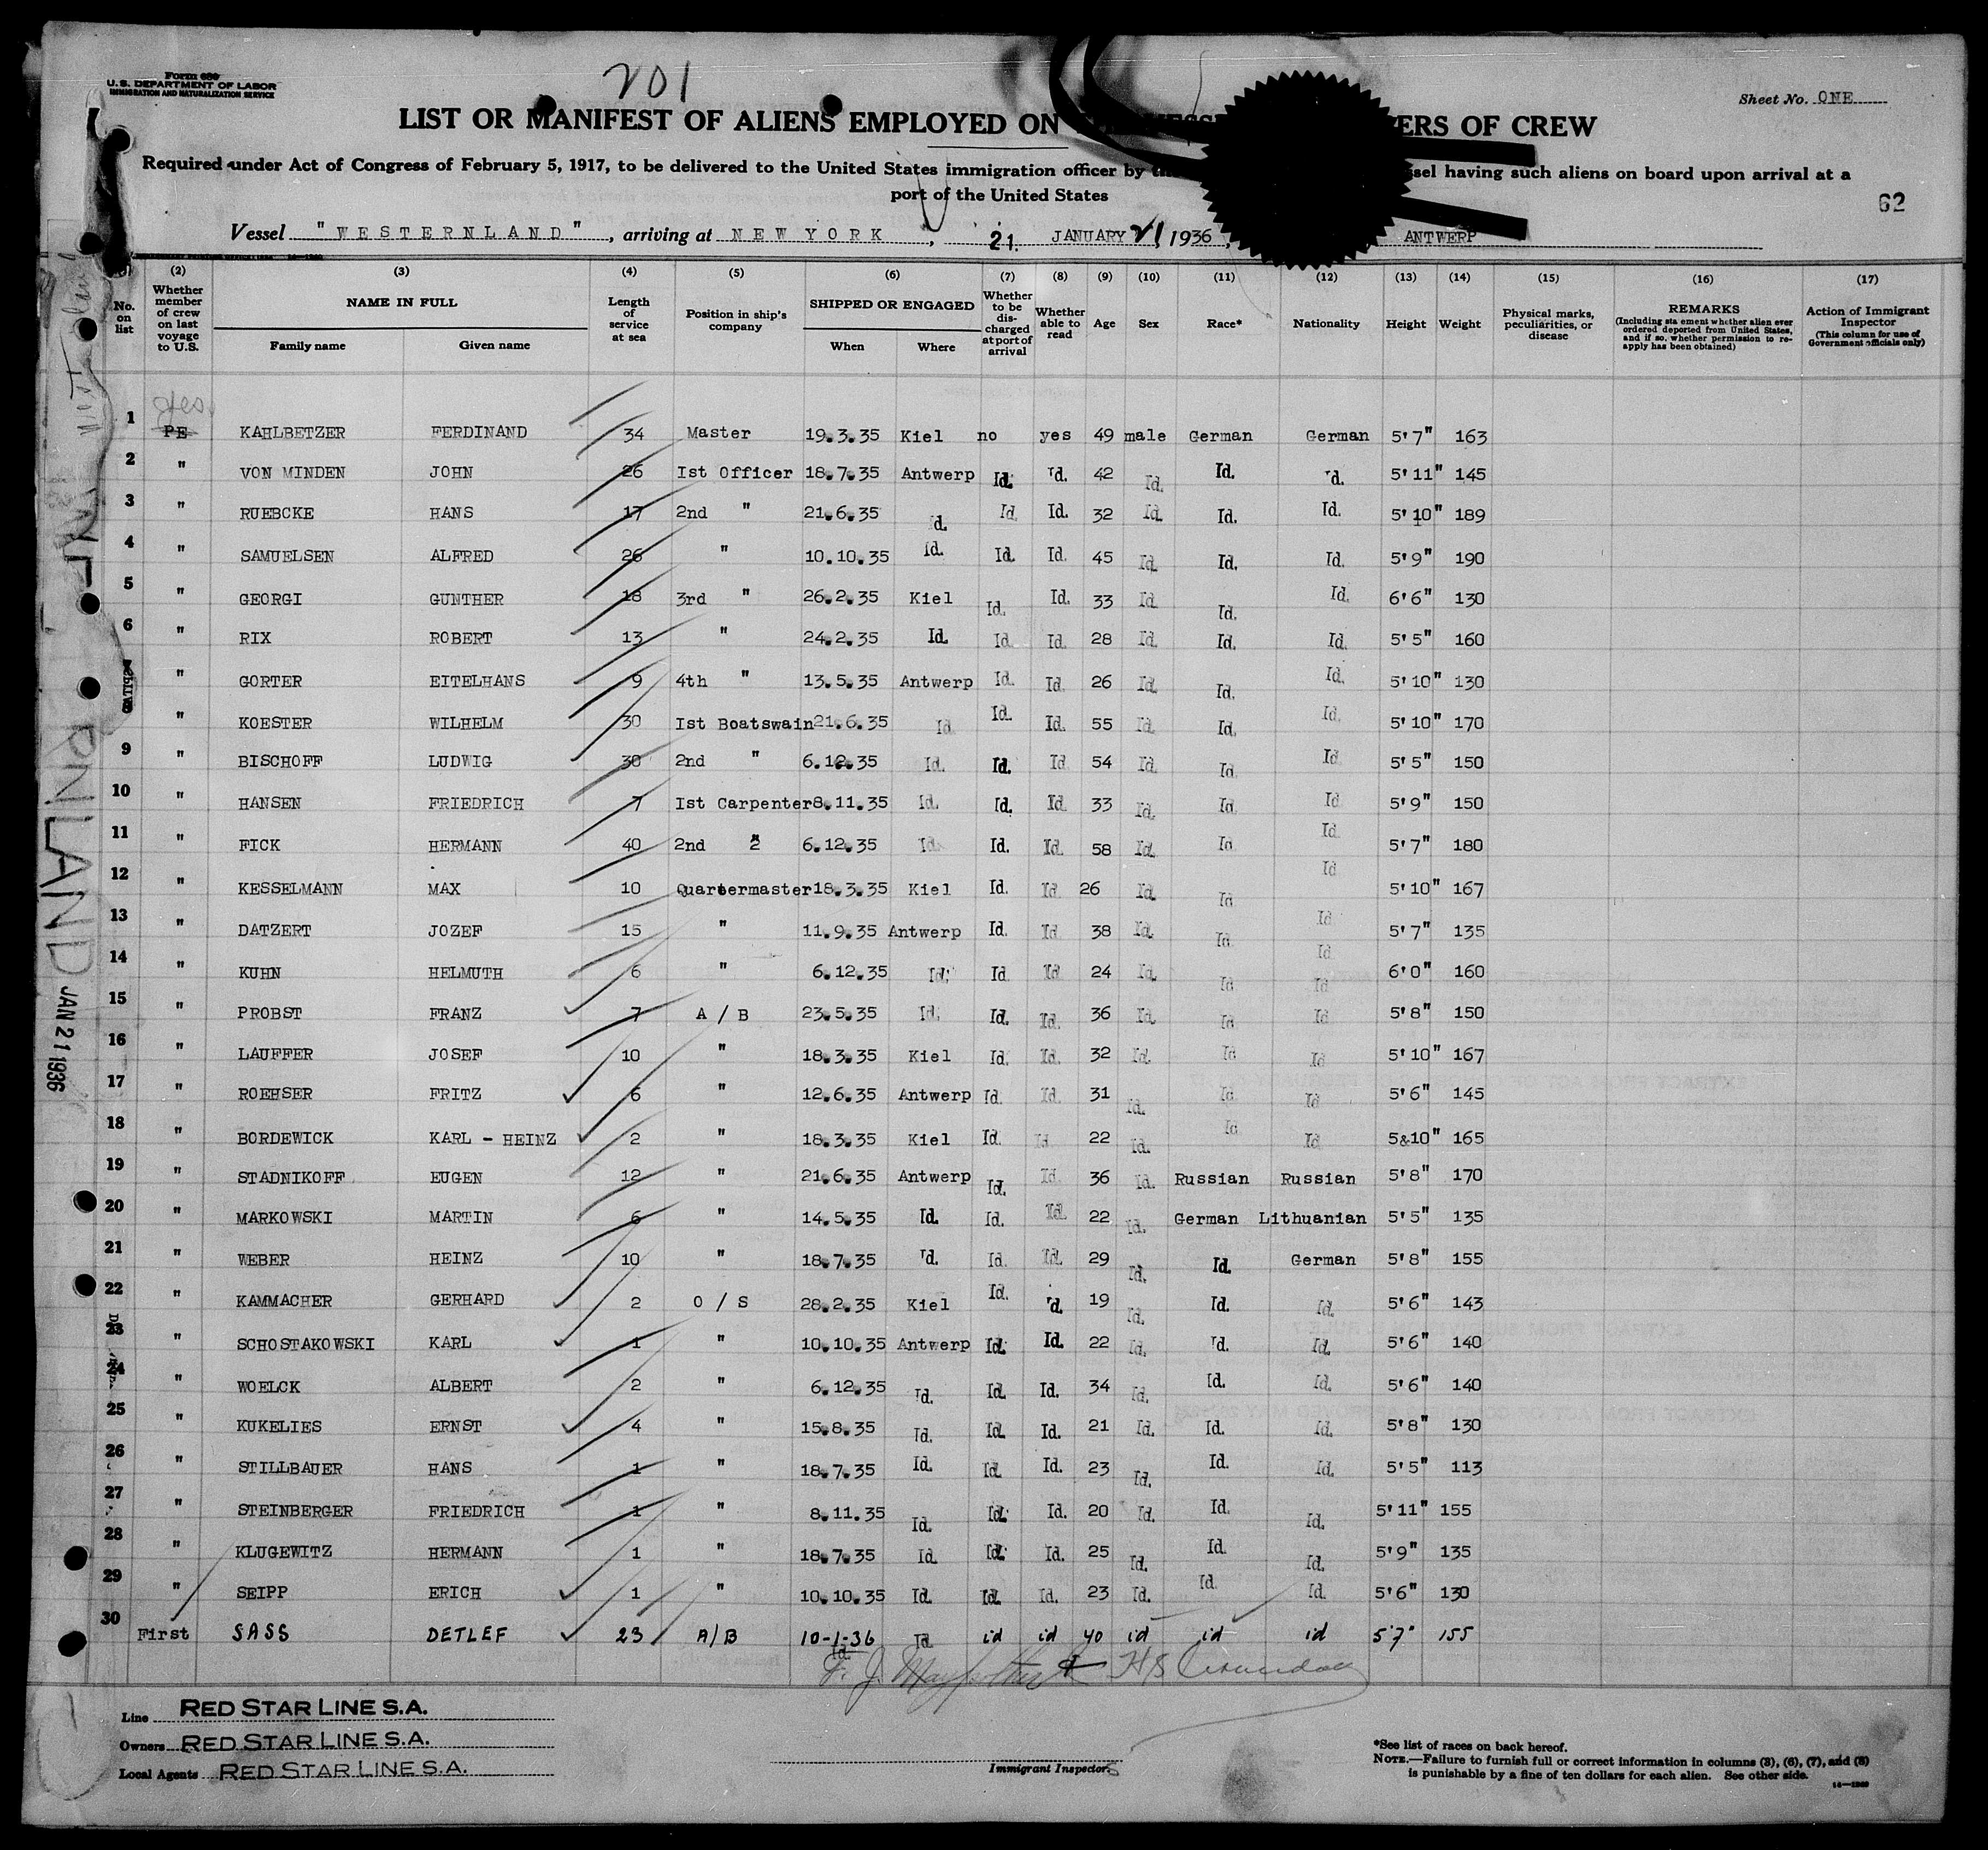 Form 680
U.S. DEPARTMENT OF LABOR
IMMIGRATION AND NATURALIZATION SERVICE
201
Sheet No. ONE
LIST OR MANIFEST OF ALIENS EMPLOYED ON ERS OF CREW
Required under Act of Congress of February 5, 1917, to be delivered to the United States immigration officer by ssel having such aliens on board upon arrival at a
port of the United States
62
Vessel "WESTERNLAND", arriving at NEW YORK, 21. JANUARY 21 1936, ANTWERP
(2) (3) (4) (5) (6) (7) (8) (9) (10) (11) (12) (13) (14) (15) (16) (17)
No. on list Whether member of crew on last voyage to U.S. NAME IN FULL Family name Given name Length of service at sea Position in ship's company SHIPPED OR ENGAGED When Where Whether to be discharged at port of arrival Whether able to read Age Sex Race* Nationality Height Weight Physical marks, peculiarities, or disease REMARKS (Including statement whether alien ever ordered deported from United States, and if so, whether permission to reapply has been obtained) Action of Immigrant Inspector (This column for use of Government officials only)
yes
1 PE KAHLBETZER FERDINAND 34 Master 19.3.35 Kiel no yes 49 male German German 5'7" 163
2 " VON MINDEN JOHN 26 Ist Officer 18.7.35 Antwerp Id. Id. 42 Id. Id. Id. 5'11" 145
3 " RUEBCKE HANS 17 2nd " 21.6.35 Id. Id. Id. 32 Id. Id. Id. 5'10" 189
4 " SAMUELSEN ALFRED 26 " 10.10.35 Id. Id. Id. 45 Id. Id. Id. 5'9" 190
5 " GEORGI GUNTHER 18 3rd " 26.2.35 Kiel Id. Id. 33 Id. Id. Id. 6'6" 130
6 " RIX ROBERT 13 " 24.2.35 Id. Id. Id. 28 Id. Id. Id. 5'5" 160
7 " GORTER EITELHANS 9 4th " 13.5.35 Antwerp Id. Id. 26 Id. Id. Id. 5'10" 130
" KOESTER WILHELM 30 Ist Boatswain 21.6.35 Id Id. Id. 55 Id. Id. Id. 5'10" 170
9 " BISCHOFF LUDWIG 30 2nd " 6.12.35 Id. Id. Id 54 Id. Id Id 5'5" 150
10 " HANSEN FRIEDRICH 7 Ist Carpenter 8.11.35 Id. Id. Id 33 Id. Id Id 5'9" 150
11 " FICK HERMANN 40 2nd " 6.12.35 Id. Id. Id 58 Id. Id Id 5'7" 180
12 " KESSELMANN MAX 10 Quartermaster 18.3.35 Kiel Id. Id 26 Id. Id Id 5'10" 167
13 " DATZERT JOZEF 15 " 11.9.35 Antwerp Id. Id 38 Id. Id Id 5'7" 135
14 " KUHN HELMUTH 6 " 6.12.35 Id. Id Id 24 Id. Id Id 6'0" 160
15 " PROBST FRANZ 7 A / B 23.5.35 Id. Id. Id. 36 Id. Id Id 5'8" 150
16 " LAUFFER JOSEF 10 " 18.3.35 Kiel Id. Id. 32 Id. Id Id 5'10" 167
17 " ROEHSER FRITZ 6 " 12.6.35 Antwerp Id. Id. 31 Id. Id Id 5'6" 145
18 " BORDEWICK KARL - HEINZ 2 " 18.3.35 Kiel Id. Id 22 Id. Id Id 5&10" 165
19 " STADNIKOFF EUGEN 12 " 21.6.35 Antwerp Id. Id. 36 Id. Russian Russian 5'8" 170
20 " MARKOWSKI MARTIN 6 " 14.5.35 Id. Id. Id. 22 Id. German Lithuanian 5'5" 135
21 " WEBER HEINZ 10 " 18.7.35 Id. Id. Id. 29 Id. Id. German 5'8" 155
22 " KAMMACHER GERHARD 2 O / S 28.2.35 Kiel Id. Id. 19 Id. Id. Id. 5'6" 143
23 " SCHOSTAKOWSKI KARL 1 " 10.10.35 Antwerp Id. Id. 22 Id. Id. Id. 5'6" 140
24 " WOELCK ALBERT 2 " 6.12.35 Id. Id. Id. 34 Id. Id. Id. 5'6" 140
25 " KUKELIES ERNST 4 " 15.8.35 Id. Id. Id. 21 Id. Id. Id. 5'8" 130
26 " STILLBAUER HANS 1 " 18.7.35 Id. Id. Id. 23 Id. Id. Id. 5'5" 113
27 " STEINBERGER FRIEDRICH 1 " 8.11.35 Id. Id. Id. 20 Id. Id. Id. 5'11" 155
28 " KLUGEWITZ HERMANN 1 " 18.7.35 Id. Id. Id. 25 Id. Id. Id. 5'9" 135
29 " SEIPP ERICH 1 " 10.10.35 Id. Id. Id. 23 Id. Id. Id. 5'6" 130
30 First SASS DETLEF 23 A/B 10-1-36 Id. id id 40 id id id 5'7" 155
JAN 21 1936
Line RED STAR LINE S.A.
Owners RED STAR LINE S.A.
Local Agents RED STAR LINE S.A.
Immigrant Inspector
*See list of races on back hereof.
NOTE.—Failure to furnish full or correct information in columns (3), (6), (7), and (8)
is punishable by a fine of ten dollars for each alien. See other side.